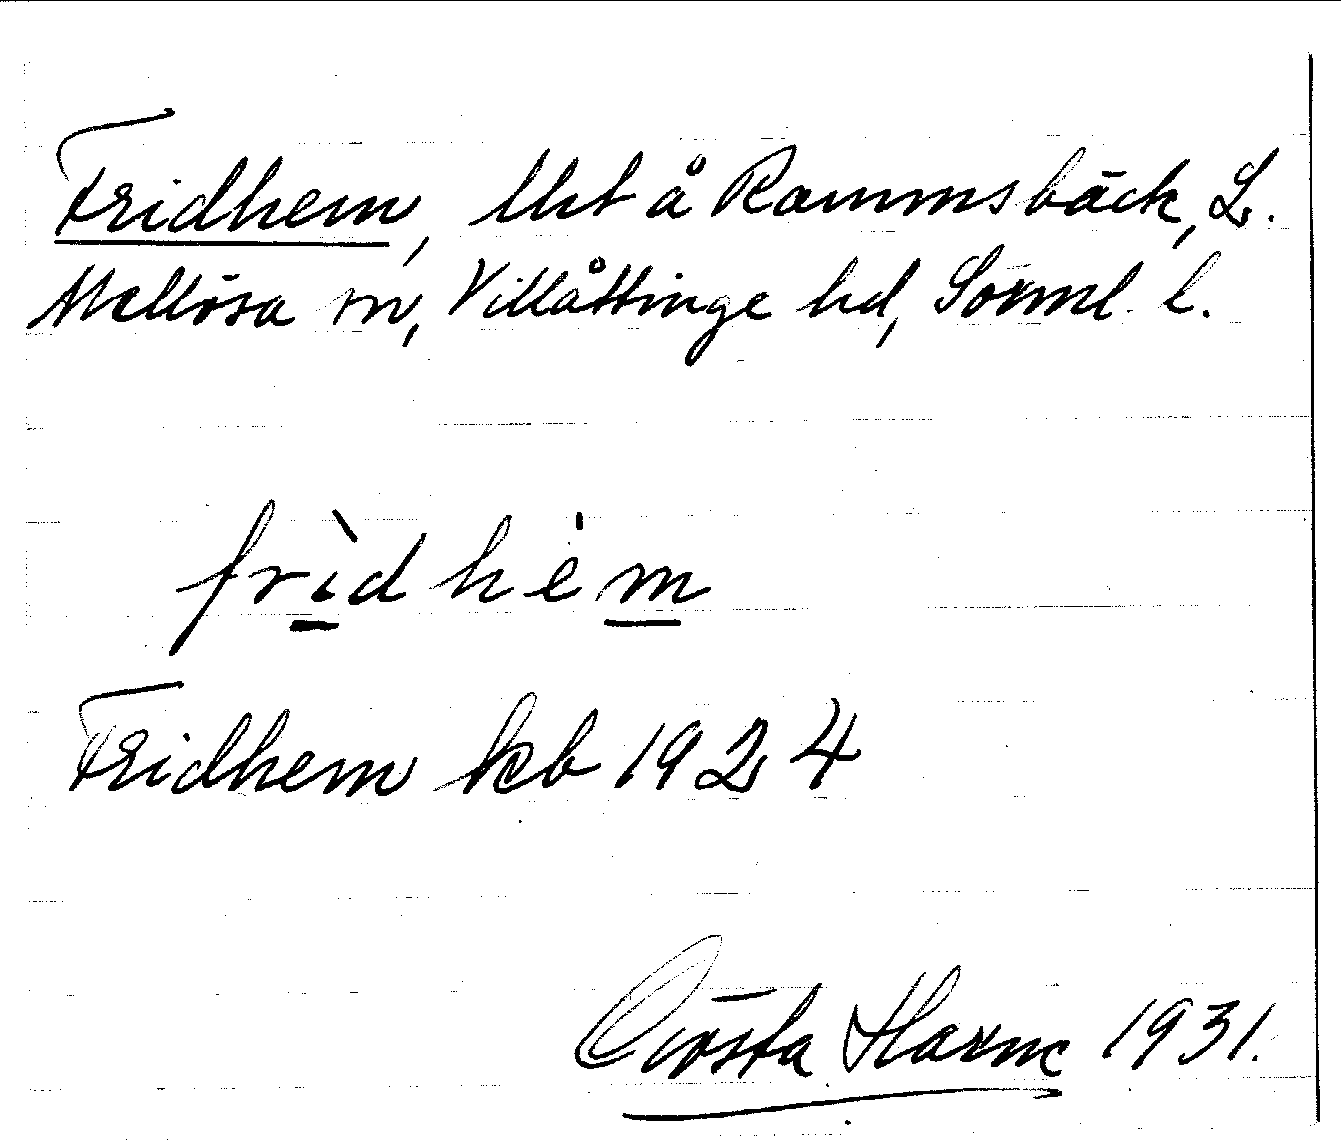 Fridhem, lht å Rammsbäck, L.
Mellösa sn, Villåttinge hd, Sörml. l.
frìdhèm
Fridhem kb 1924
Gösta Harne 1931.